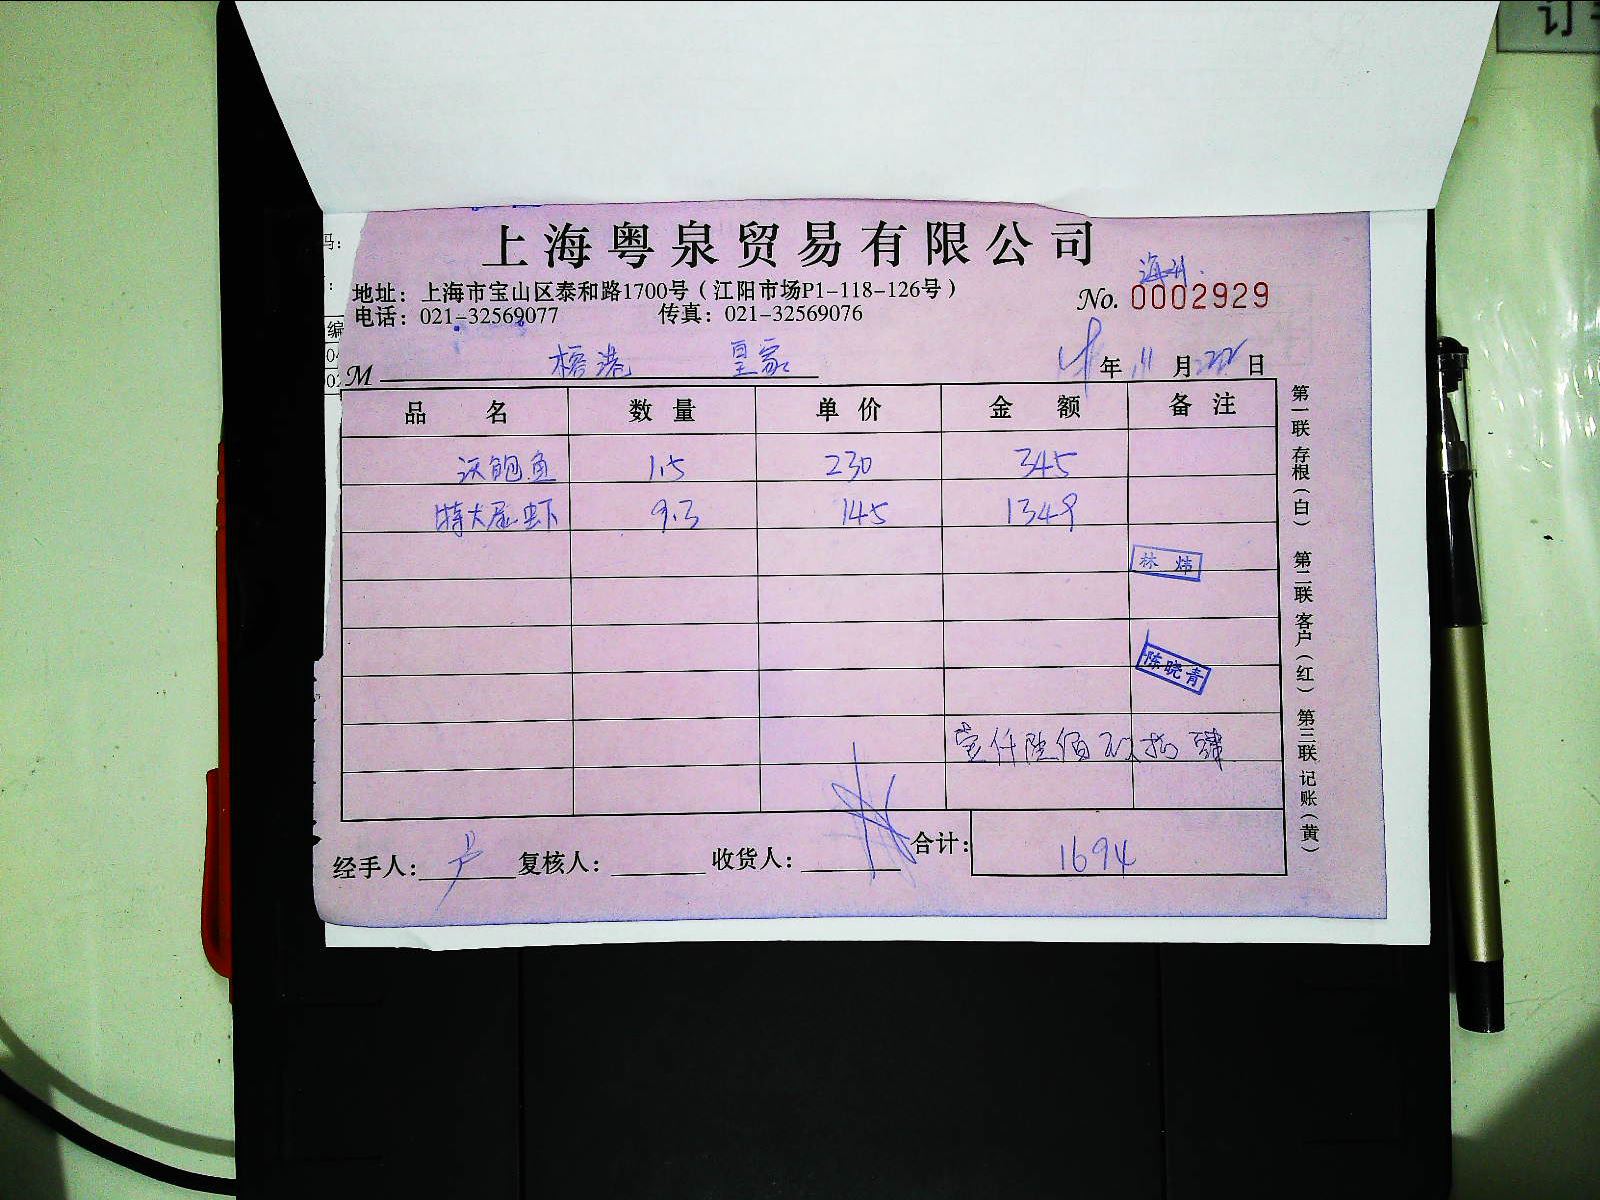 订
上海粤泉贸易有限公司
海州
地址：上海市宝山区泰和路1700号（江阳市场P1-118-126号）
No. 0002929
电话：021-32569077 传真：021-32569076
M 榕港 皇家
年 11 月 22 日
品名 数量 单价 金额 备注
沃鲍鱼 1.5 230 345
特大尾虾 9.3 145 1349
林炜
陈晓青
壹仟陆佰玖拾肆
经手人： 复核人： 收货人： 合计： 1694
第一联存根（白） 第二联客户（红） 第三联记账（黄）
码：
编